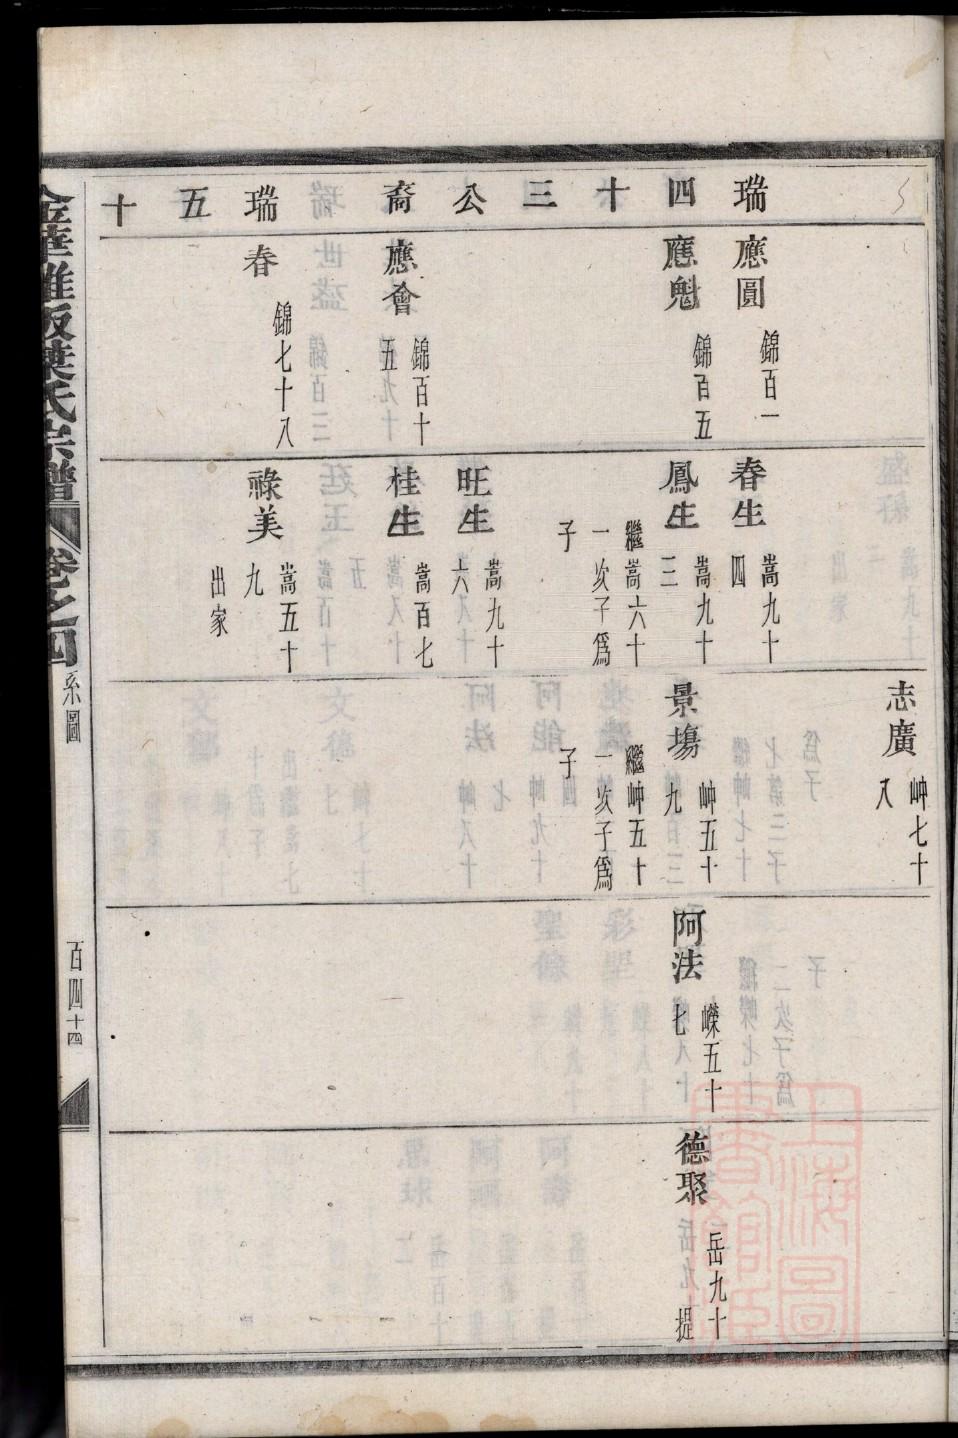 瑞四十三公裔瑞五十
應圓 錦百一
應魁 錦百五
應會 錦百十五
春 錦七十八
春生 嵩九十四
鳳生 嵩九十三
繼嵩六十一次子爲子
旺生 嵩九十六
桂生 嵩百七
祿美 嵩五十九
出家
志廣 岫七十八
景塲 岫五十九
繼岫五十一次子爲子
阿法 嶸五十七
德聚 岳九十
提
葉氏宗譜 卷之四 系圖 百四十四